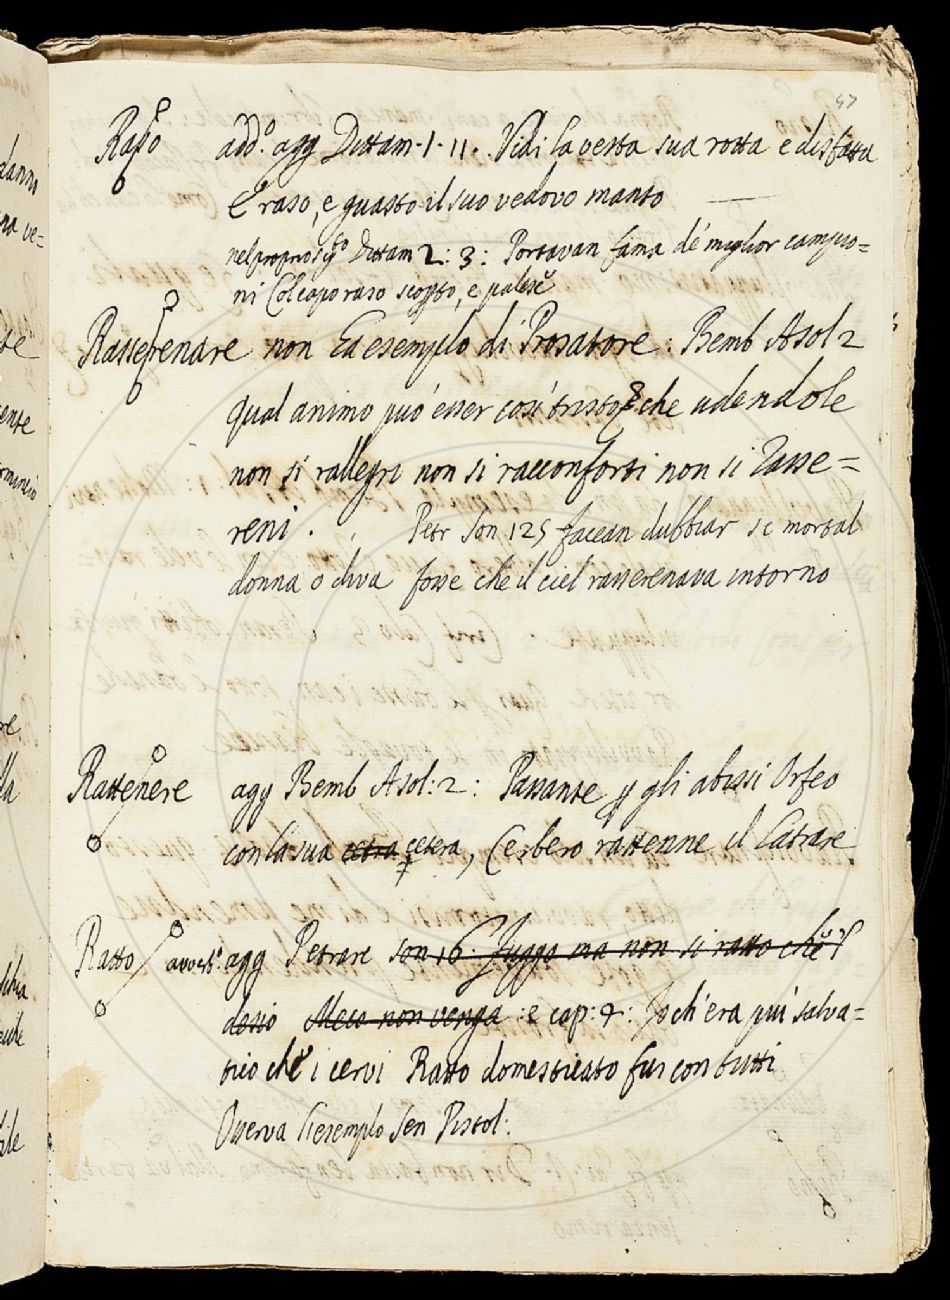 57
Raso add.º agg Dittam. 1. 11. Vidi la vesta sua rotta e disfatta
E raso, e guasto il suo vedovo manto
nel proprio sig.to Dittam 2: 3: Portavan fama de' miglior campio=
ni Col capo raso scopto, e palese
Rasserenare non Ea esemplo di Prosatore: Bemb Asol 2
qual animo può esser così tristo che udendole
non si rallegri non si racconforti non si Rasse=
reni. Petr Son 125 facean dubbiar se mortal
donna o diva fosse che il ciel rasserenava intorno
Rattenere agg Bemb Asol: 2: Passante p gli abissi Orfeo
con la sua cetra cetera, Cerbero rattenne il latrare
Ratto avverb.º agg Petrare son 16 fuggo ma non si ratto che 'l
desio Meco non venga: e cap: 4: Io ch'era più salva=
tico che i cervi Ratto domesticato fui con tutti
Osserva l'esemplo Sen Pistol: